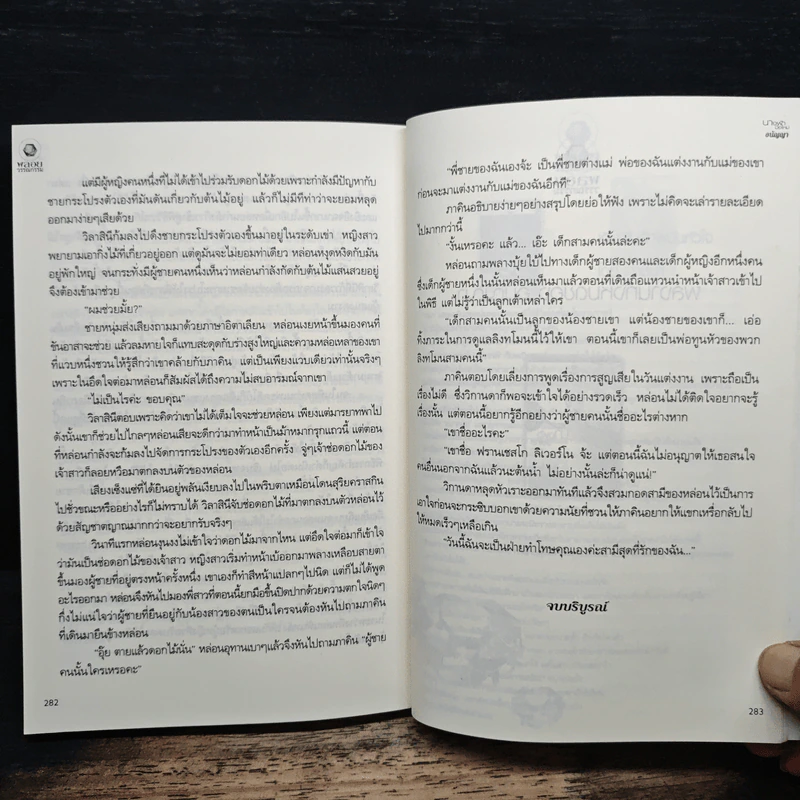 พลอย
วรรณกรรม
แต่มีผู้หญิงคนหนึ่งที่ไม่ได้เข้าไปร่วมรับดอกไม้ด้วยเพราะกำลังมีปัญหากับ
ชายกระโปรงตัวเองที่มันดันเกี่ยวกับต้นไม้อยู่ แล้วก็ไม่มีทีท่าว่าจะยอมหลุด
ออกมาง่ายๆเสียด้วย
วิลาสินีก้มลงไปดึงชายกระโปรงตัวเองขึ้นมาอยู่ในระดับเข่า หญิงสาว
พยายามเอากิ่งไม้ที่เกี่ยวอยู่ออก แต่ดูมันจะไม่ยอมท่าเดียว หล่อนหงุดหงิดกับมัน
อยู่พักใหญ่ จนกระทั่งมีผู้ชายคนหนึ่งเห็นว่าหล่อนกำลังกัดกับต้นไม้แสนสวยอยู่
จึงต้องเข้ามาช่วย
"ผมช่วยมั้ย?"
ชายหนุ่มส่งเสียงถามมาด้วยภาษาอิตาเลียน หล่อนเงยหน้าขึ้นมองคนที่
ขันอาสาจะช่วย แล้วลมหายใจก็แทบสะดุดกับร่างสูงใหญ่และความหล่อเหลาของเขา
ที่แวบหนึ่งชวนให้รู้สึกว่าเขาคล้ายกับภาคิน แต่เป็นเพียงแวบเดียวเท่านั้นจริงๆ
เพราะในอึดใจต่อมาหล่อนก็สัมผัสได้ถึงความไม่สบอารมณ์จากเขา
"ไม่เป็นไรค่ะ ขอบคุณ"
วิลาสินีตอบเพราะคิดว่าเขาไม่ได้เต็มใจจะช่วยหล่อน เพียงแต่มารยาทพาไป
ดังนั้นเขาก็ช่วยไปไกลๆหล่อนเสียจะดีกว่ามาทำหน้าเป็นม้าหมากรุกแถวนี้ แต่ตอน
ที่หล่อนกำลังจะก้มลงไปจัดการกระโปรงของตัวเองอีกครั้ง จู่ๆเจ้าช่อดอกไม้ของ
เจ้าสาวก็ลอยหวือมาตกลงบนตัวของหล่อน
เสียงเซ็งแซ่ที่ได้ยินอยู่พลันเงียบลงไปในพริบตาเหมือนโดนสุริยคราสกิน
ไปชั่วขณะหรืออย่างไรก็ไม่ทราบได้ วิลาสินีจับช่อดอกไม้ที่มาตกลงบนตัวหล่อนไว้
ด้วยสัญชาตญาณมากกว่าจะอยากรับจริงๆ
วินาทีแรกหล่อนงุนงงไม่เข้าใจว่าดอกไม้มาจากไหน แต่อึดใจต่อมาก็เข้าใจ
ว่ามันเป็นช่อดอกไม้ของเจ้าสาว หญิงสาวเริ่มทำหน้าเบ้ออกมาพลางเหลือบสายตา
ขึ้นมองผู้ชายที่อยู่ตรงหน้าครั้งหนึ่ง เขาเองก็ทำสีหน้าแปลกๆไปนิด แต่ก็ไม่ได้พูด
อะไรออกมา หล่อนจึงหันไปมองพี่สาวที่ตอนนี้ยกมือขึ้นปิดปากด้วยความตกใจนิดๆ
กึ่งไม่แน่ใจว่าผู้ชายที่ยืนอยู่กับน้องสาวของตนเป็นใครจนต้องหันไปถามภาคิน
ที่เดินมายืนข้างหล่อน
"อุ๊ย ตายแล้วดอกไม้นั่น" หล่อนอุทานเบาๆแล้วจึงหันไปถามภาคิน "ผู้ชาย
คนนั้นใครเหรอคะ"
282
อนัญญา
"พี่ชายของฉันเองจ้ะ เป็นพี่ชายต่างแม่ พ่อของฉันแต่งงานกับแม่ของเขา
ก่อนจะมาแต่งงานกับแม่ของฉันอีกที"
ภาคินอธิบายง่ายๆอย่างสรุปโดยย่อให้ฟัง เพราะไม่คิดจะเล่ารายละเอียด
ไปมากกว่านี้
"งั้นเหรอคะ แล้ว... เอ๊ะ เด็กสามคนนั้นล่ะคะ"
หล่อนถามพลางบุ้ยใบ้ไปทางเด็กผู้ชายสองคนและเด็กผู้หญิงอีกหนึ่งคน
ซึ่งเด็กผู้ชายหนึ่งในนั้นหล่อนเห็นมาแล้วตอนที่เดินถือแหวนนำหน้าเจ้าสาวเข้าไป
ในพิธี แต่ไม่รู้ว่าเป็นลูกเต้าเหล่าใคร
"เด็กสามคนนั้นเป็นลูกของน้องชายเขา แต่น้องชายของเขาก็... เอ่อ
ทิ้งภาระในการดูแลลิงทโมนนี้ไว้ให้เขา ตอนนี้เขาก็เลยเป็นพ่อทูนหัวของพวก
ลิงทโมนสามคนนี้"
ภาคินตอบโดยเลี่ยงการพูดเรื่องการสูญเสียในวันแต่งงาน เพราะถือเป็น
เรื่องไม่ดี ซึ่งวิกานดาก็พอจะเข้าใจได้อย่างรวดเร็ว หล่อนไม่ได้ติดใจอยากจะรู้
เรื่องนั้น แต่ตอนนี้อยากรู้อีกอย่างว่าผู้ชายคนนั้นชื่ออะไรต่างหาก
"เขาชื่ออะไรคะ"
"เขาชื่อ ฟรานเชสโก ลิเวอร์โน จ้ะ แต่ตอนนี้ฉันไม่อนุญาตให้เธอสนใจ
คนอื่นนอกจากฉันแล้วนะต้นน้ำ ไม่อย่างนั้นล่ะก็น่าดูแน่!"
วิกานดาหลุดหัวเราะออกมาทันทีแล้วจึงสวมกอดสามีของหล่อนไว้เป็นการ
เอาใจก่อนจะกระซิบบอกเขาด้วยความนัยที่ชวนให้ภาคินอยากให้แขกเหรื่อกลับไป
ให้หมดเร็วๆเหลือเกิน
"วันนี้ฉันจะเป็นฝ่ายทำโทษคุณเองค่ะสามีสุดที่รักของฉัน..."
จบบริบูรณ์
283